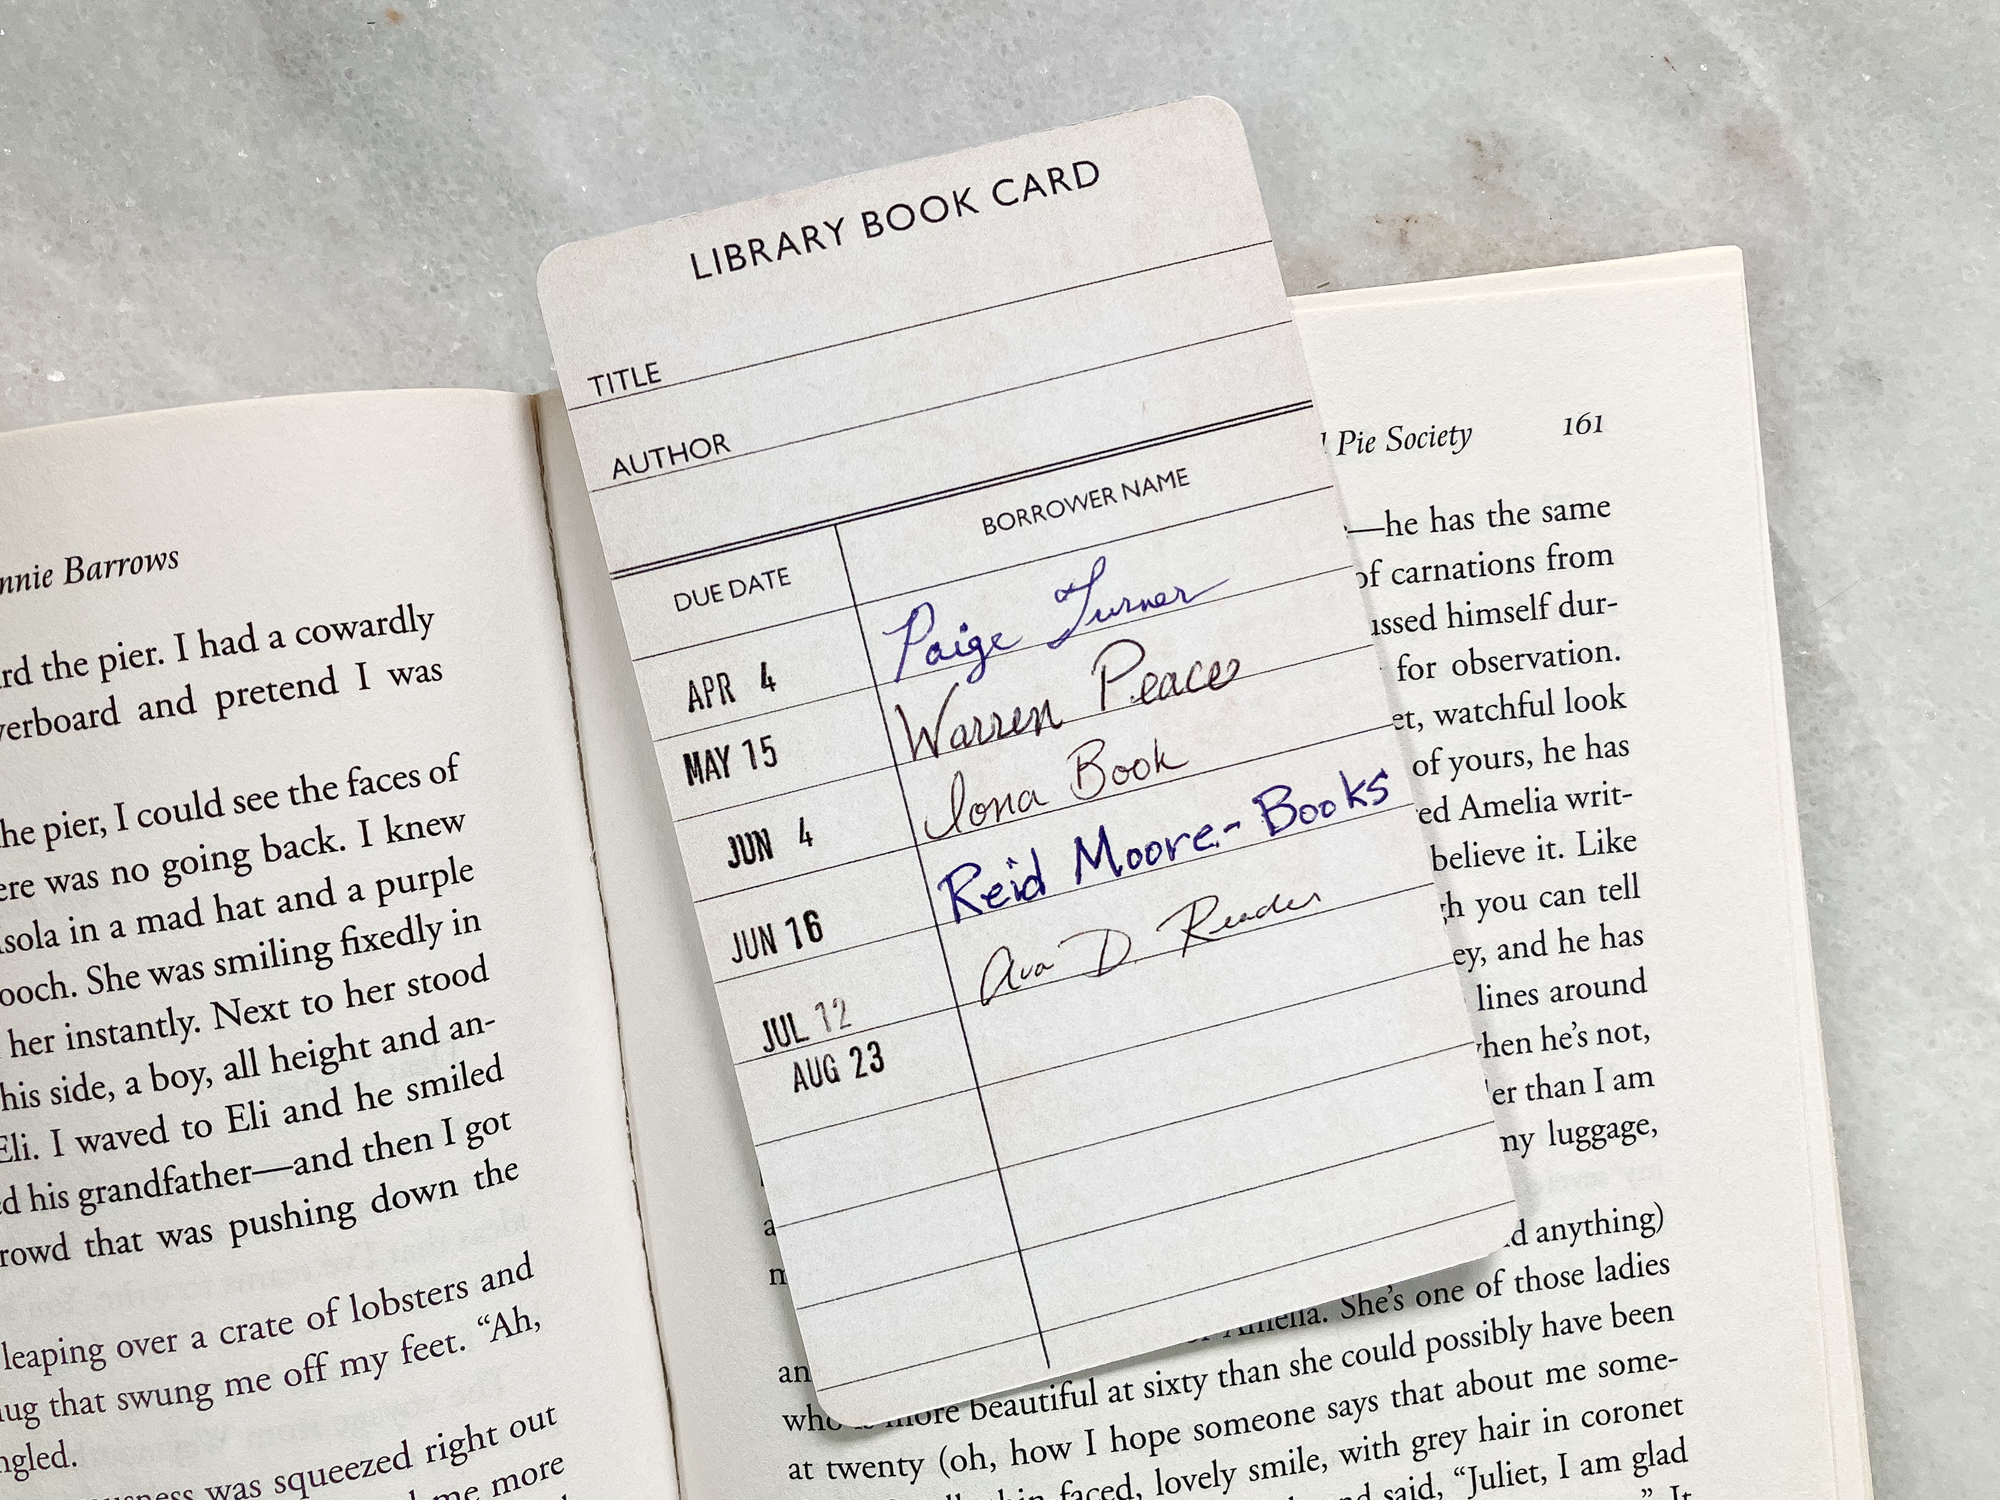 LIBRARY BOOK CARD
TITLE
AUTHOR
DUE DATE BORROWER NAME
APR 4 Paige Turner
MAY 15 Warren Peace
JUN 4 Iona Book
JUN 16 Reid Moore-Books
JUL 12 Ava D. Reader
AUG 23
Barrows
the pier. I had a cowardly
and pretend I was
pier, I could see the faces of
was no going back. I knew
in a mad hat and a purple
She was smiling fixedly in
her instantly. Next to her stood
his side, a boy, all height and an-
Eli. I waved to Eli and he smiled
his grandfather—and then I got
that was pushing down the
leaping over a crate of lobsters and
that swung me off my feet. “Ah,
was squeezed right out
me more
Pie Society 161
—he has the same
of carnations from
himself dur-
for observation.
watchful look
of yours, he has
Amelia writ-
believe it. Like
you can tell
and he has
lines around
when he’s not,
than I am
my luggage,
anything)
Amelia. She’s one of those ladies
who is more beautiful at sixty than she could possibly have been
at twenty (oh, how I hope someone says that about me some-
faced, lovely smile, with grey hair in coronet
and said, “Juliet, I am glad